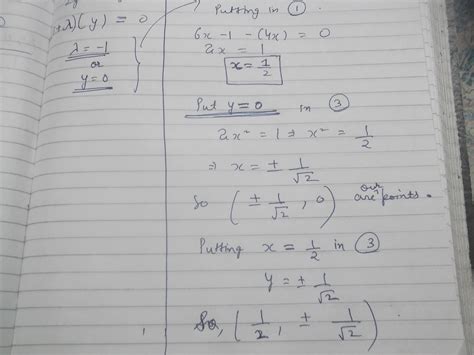 λ)(y) = 0
λ = -1
or
y = 0
Putting in ①
6x - 1 - (4x) = 0
2x = 1
x = 1/2
Put y = 0 in ③
2x² = 1 ⇒ x² = 1/2
⇒ x = ± 1/√2
So (± 1/√2, 0) are our points.
Putting x = 1/2 in ③
y = ± 1/√2
So, (1/2, ± 1/√2)